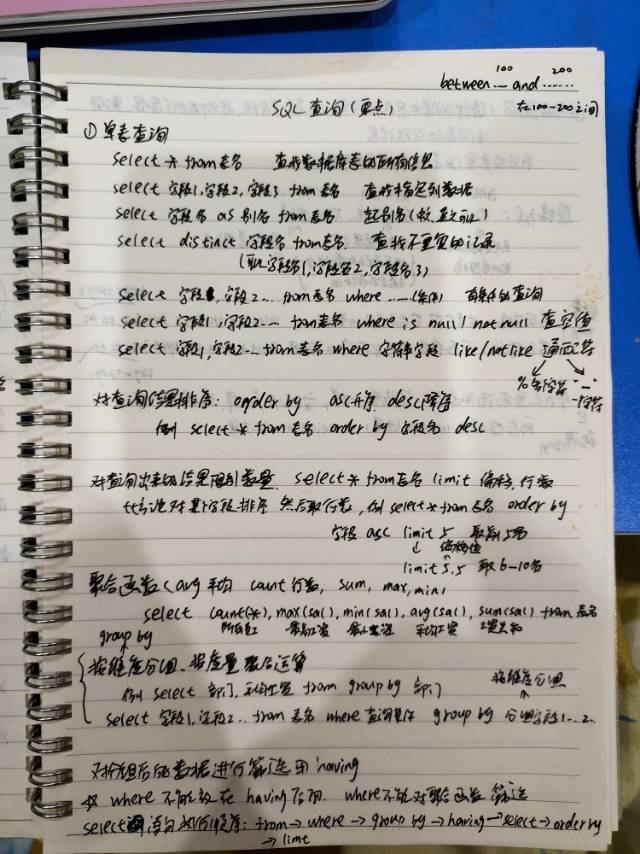 100 200
between....and......
SQL查询(重点) 在100-200之间
①单表查询
select * from表名 查找数据库表的所有信息
select 字段1,字段2,字段3 from表名 查找指定列数据
select 字段名 as 别名 from表名 起别名
select distinct 字段名 from表名. 查找不重复的记录
(可以字段名1,字段名2,字段名3)
select 字段1,字段2... from表名 where ......(条件) 有条件的查询
select 字段1,字段2... from表名 where is null / not null 查空值
select 字段1,字段2... from表名 where 字符串字段 like/not like 通配符
%多字符 "_"一字符
对查询结果排序: order by asc升序 desc降序
例 select * from 表名 order by 字段名 desc
对查询出来的结果限制数量. select * from表名 limit 偏移,行数
比如说对某个字段排序 然后取行数,例 select * from 表名 order by
字段 asc limit 5 取前5名
↓ 偏移值
limit 5,5 取6-10名
聚合函数(avg平均 count行数, sum, max, min)
select count(*), max(sal), min(sal), avg(sal), sum(sal) from 表名
最高工资 最低工资 平均工资 工资总和
group by
按维度分组、按度量聚合运算 按维度分组
例 select 部门,平均工资 from group by 部门
select 字段1,字段2.. from 表名 where 查询条件 group by 分组字段1...2..
对分组后的数据进行筛选用having
* where不能放在having后用. where不能对聚合函数筛选
select语句执行顺序: from→where→group by→having→select→order by
→limt